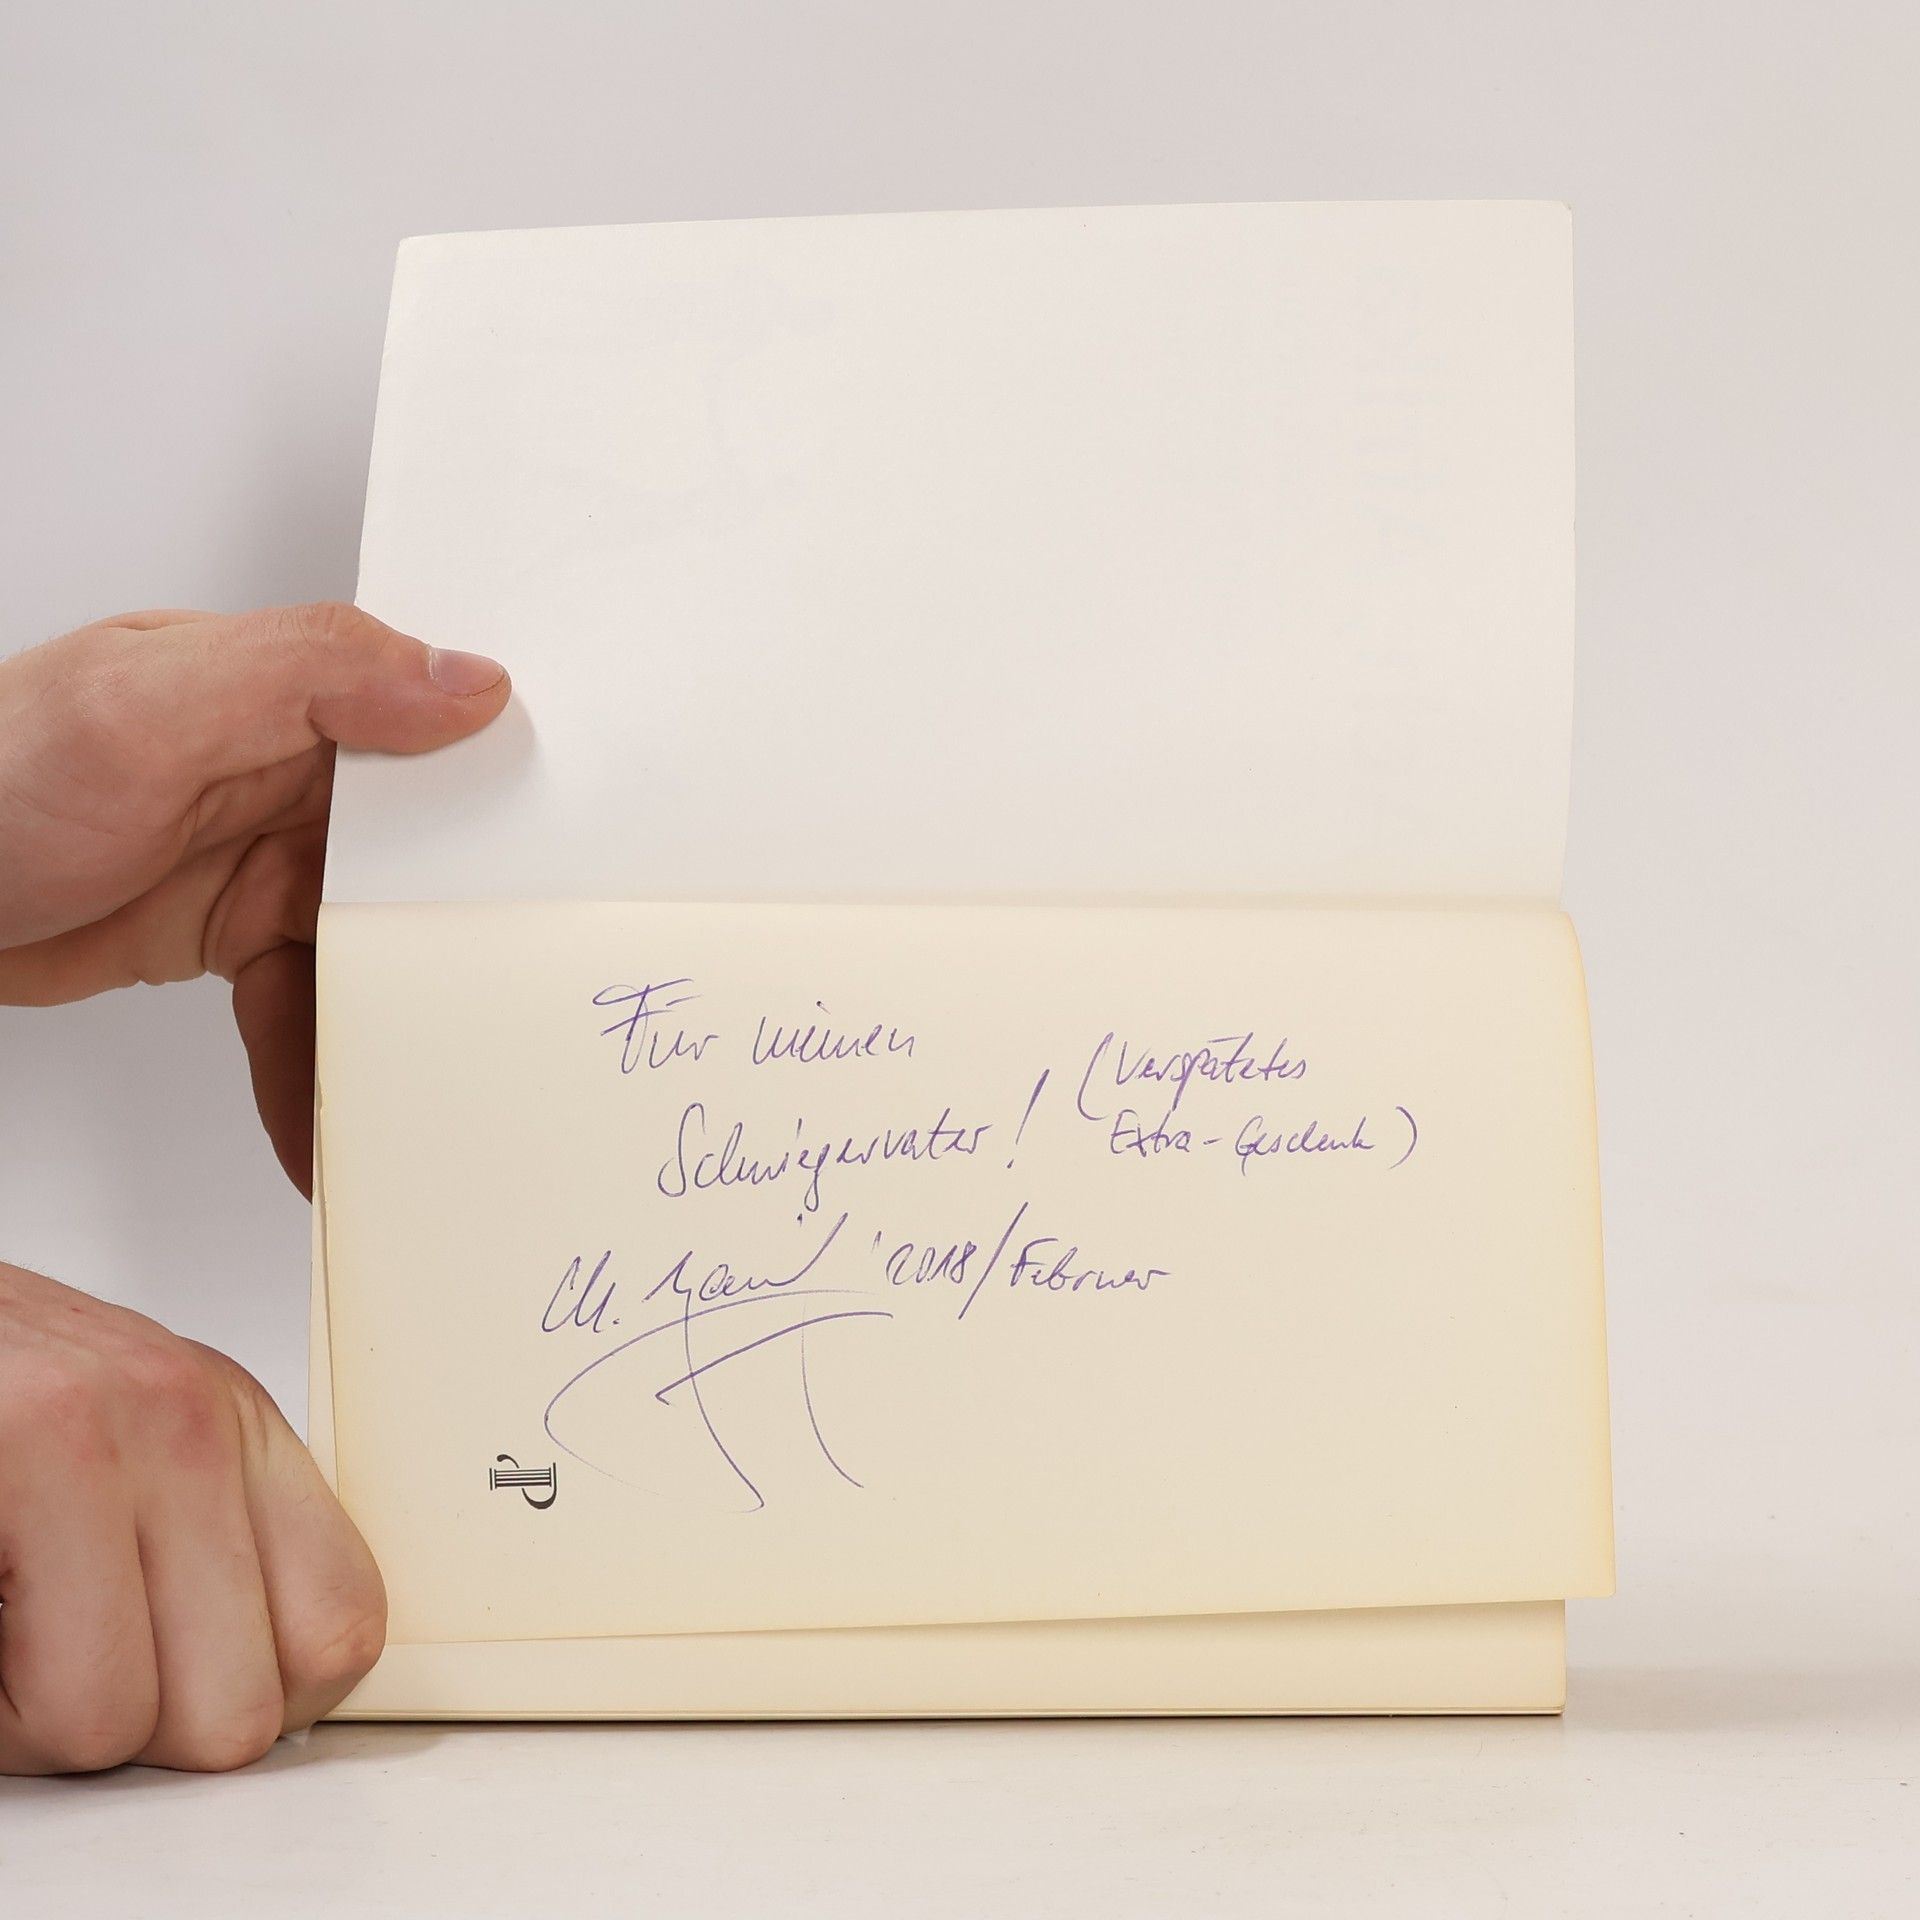 Für meinen
Schwiegervater! (Verspätetes
Extra-Geschenk)
Ch. '2018/Februar